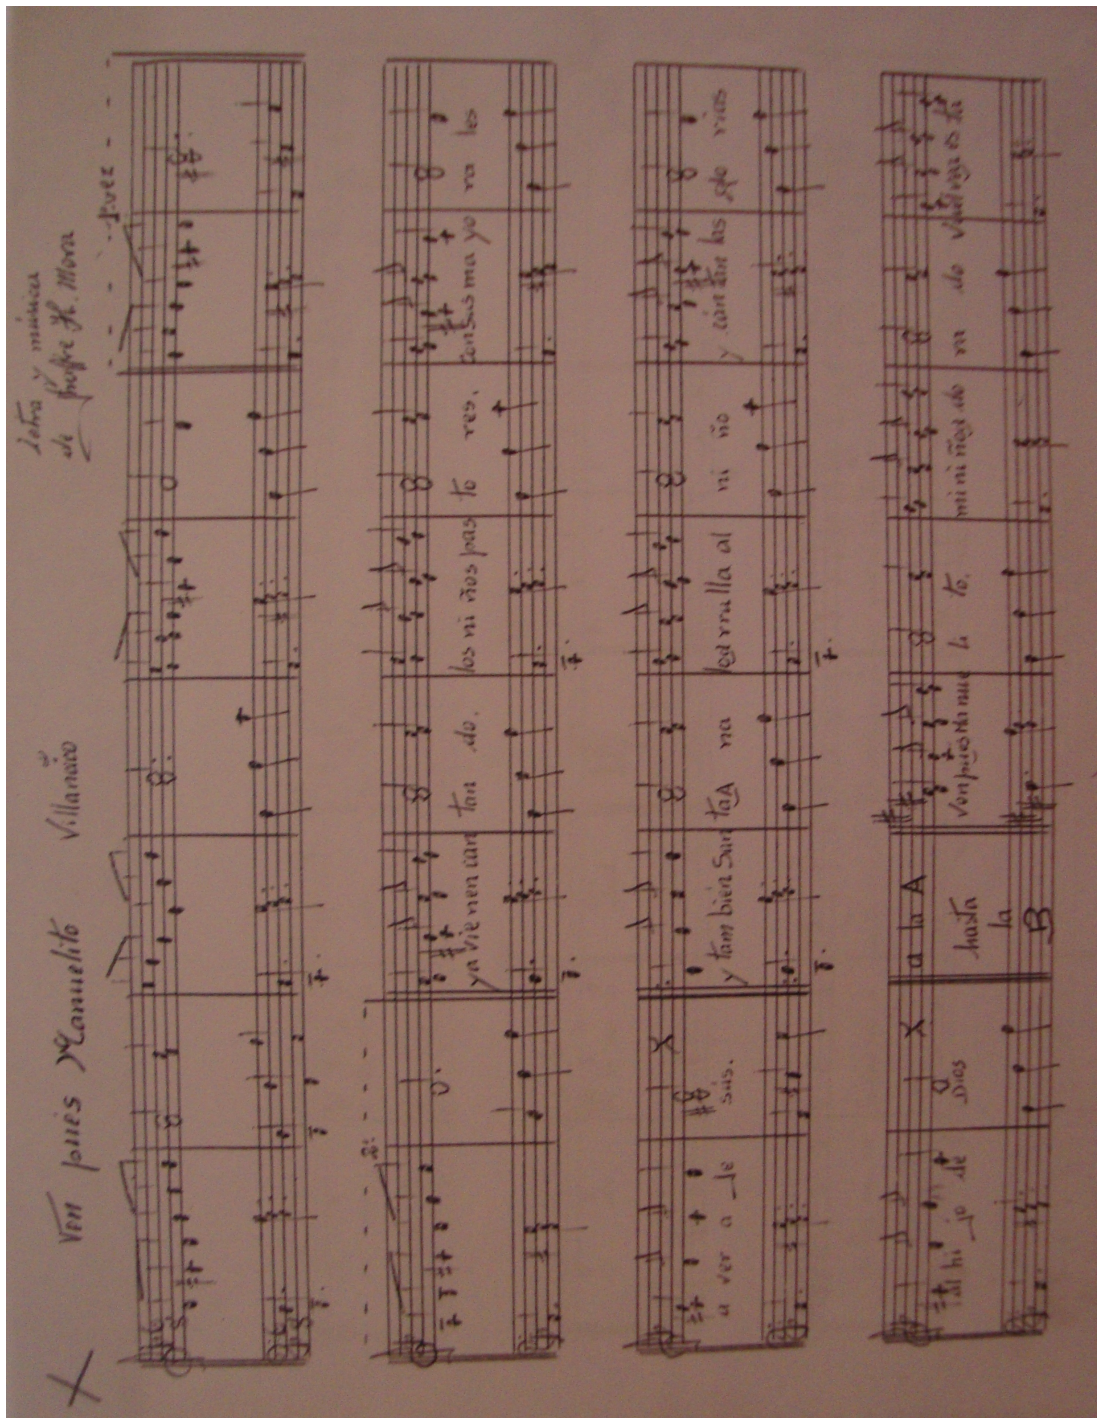 X Ven pues Manuelito Villancico
Letra y música
de H. Mora
1ª vez
2ª
ya vie nen can tan do. los ni ños pas to res. con sus ma yo ra les
a ver a Je sús. X y tam bien San ta A na le a rrulla al ni ño y can tan las glo rias
al hi jo de Dios X a la A hasta la B Ven pues Ma nue li to. mi ni ño a do ra do